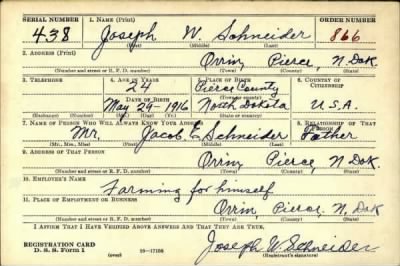 SERIAL NUMBER 1. NAME (Print) ORDER NUMBER
438 Joseph W. Schneider 866
(First) (Middle) (Last)
2. ADDRESS (Print)
Orrin, Pierce, N. Dak.
(Number and street or R. F. D. number) (Town) (County) (State)
3. TELEPHONE 4. AGE IN YEARS 5. PLACE OF BIRTH 6. COUNTRY OF CITIZENSHIP
24 Pierce County
DATE OF BIRTH
May 26-1916 North Dakota U.S.A.
(Exchange) (Number) (Mo.) (Day) (Yr.) (State or country)
7. NAME OF PERSON WHO WILL ALWAYS KNOW YOUR ADDRESS 8. RELATIONSHIP OF THAT PERSON
Mr. Jacob E. Schneider Father
(Mr., Mrs., Miss) (First) (Middle) (Last)
9. ADDRESS OF THAT PERSON
Orrin Pierce, N. Dak.
(Number and street or R. F. D. number) (Town) (County) (State)
10. EMPLOYER'S NAME
Farming for himself
11. PLACE OF EMPLOYMENT OR BUSINESS
Orrin, Pierce, N. Dak
(Number and street or R. F. D. number) (Town) (County) (State)
I AFFIRM THAT I HAVE VERIFIED ABOVE ANSWERS AND THAT THEY ARE TRUE.
REGISTRATION CARD
D. S. S. Form 1 (over) Joseph W. Schneider
(Registrant's signature)